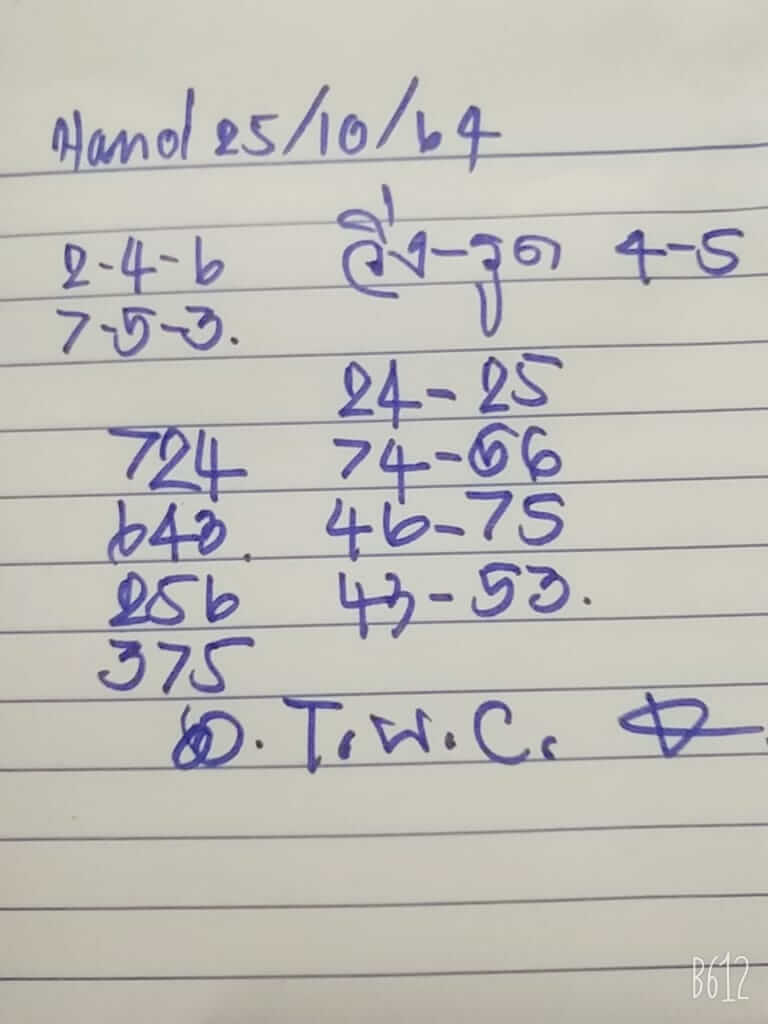 Hanol 25/10/64
2-4-6 วิ่ง-รูด 4-5
7-5-3.
24-25
724 74-56
643. 46-75
256 43-53.
375
T.W.C.
B612